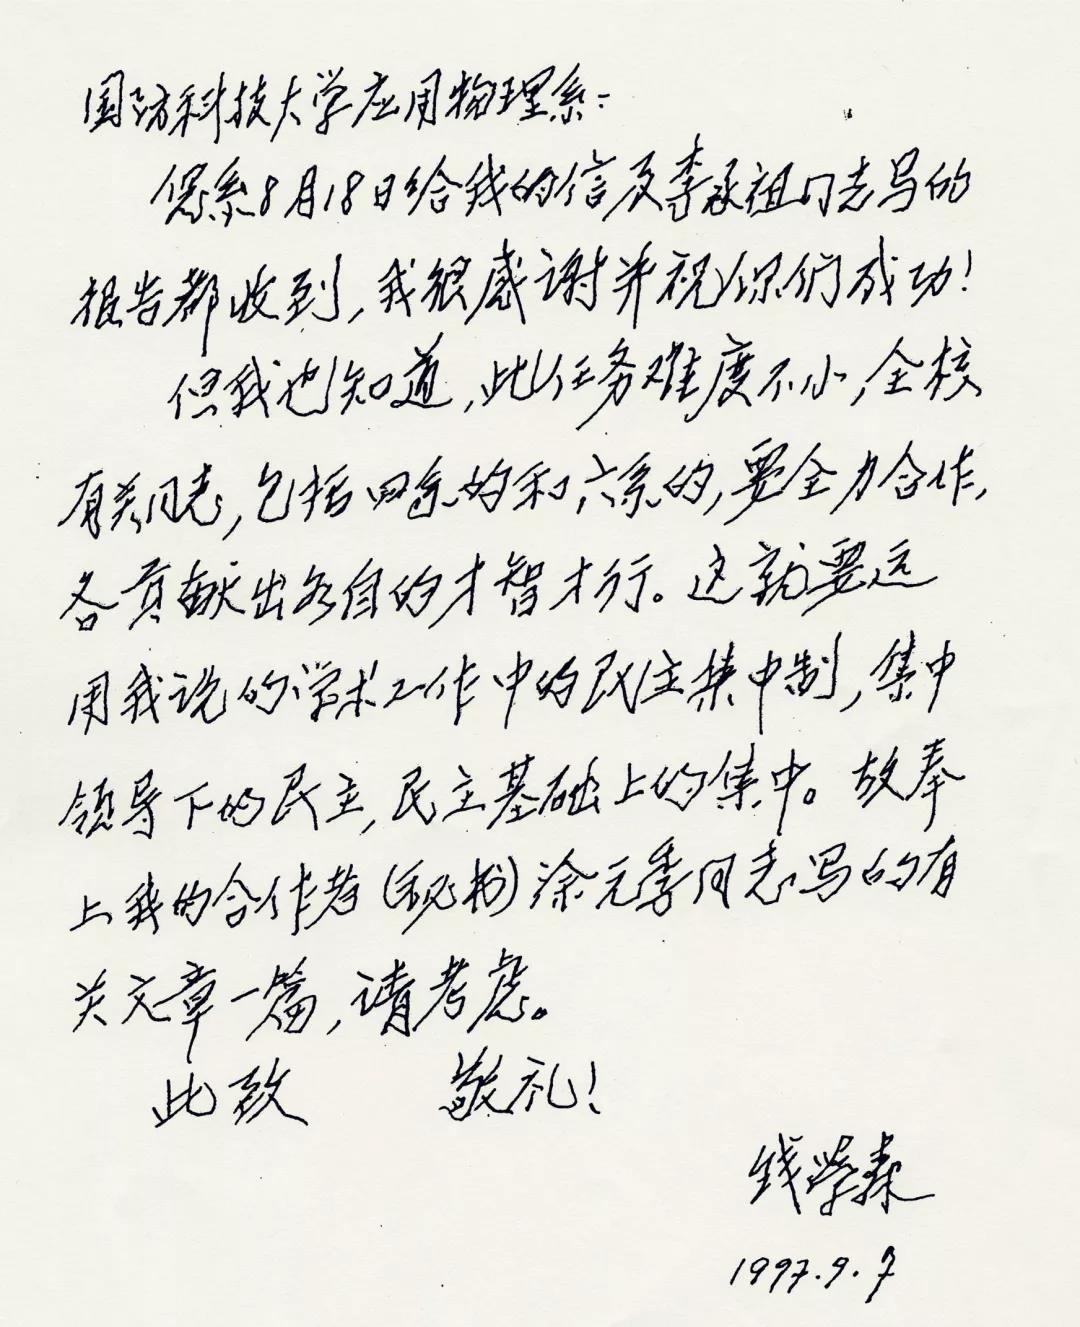 国防科技大学应用物理系：
您系8月18日给我的信及李承祖同志写的
报告都收到，我很感谢并祝你们成功！
但我也知道，此任务难度不小，全校
有关同志，包括四系的和六系的，要全力合作，
各贡献出各自的才智才行。这就要运
用我说的学术工作中的民主集中制，集中
领导下的民主，民主基础上的集中。故奉
上我的合作者（秘书）涂元季同志写的有
关文章一篇，请考虑。
此致 敬礼！
钱学森
1997.9.7